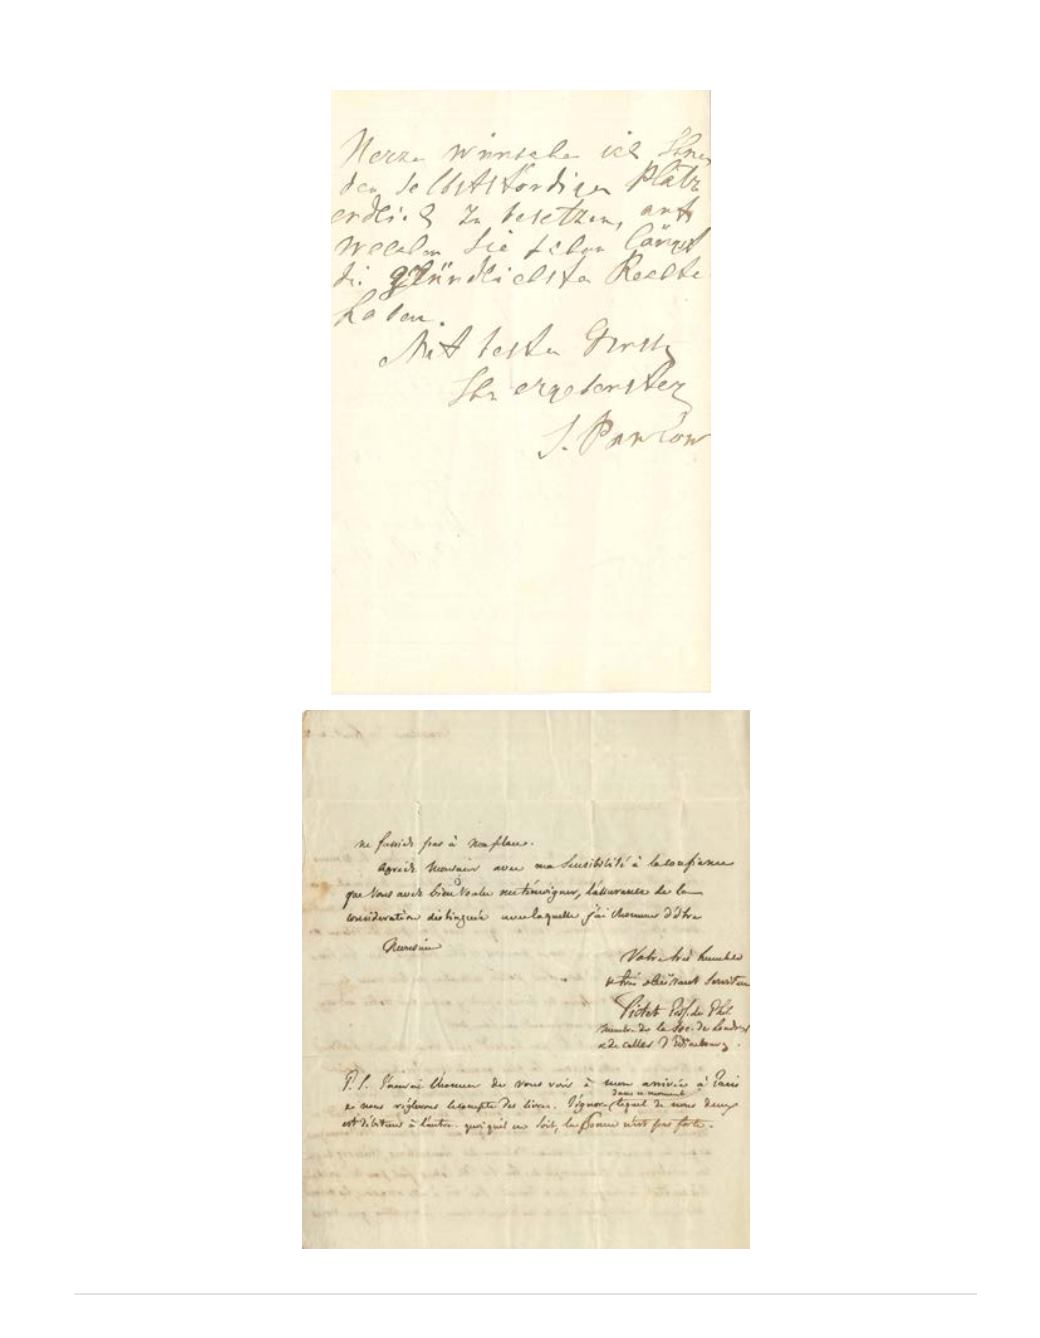 Herzen wünsche ich Ihnen
den selbstständigen Platz
endlich zu besetzen, auf
welchen Sie schon längst
die gründlichsten Rechte
haben.
Mit besten Gruß
Ihr ergebenster
J. Pawlow
ne fussiés pas à ma place.
Agréés Monsieur avec ma sensibilité à la confiance
que vous avés bien voulu me témoigner, l'assurance de la
considération distinguée avec laquelle j'ai l'honneur d'être
Monsieur
Votre très humble
& très obéissant Serviteur
Pictet Prof. de Phil.
Membre de la Soc. de Londres
& de celles d'Edinbourg.
P.S. J'aurai l'honneur de vous voir à mon arrivée à Paris
& nous réglerons le compte des livres. J'ignore dans ce moment lequel de nous deux
est débiteur à l'autre. quoiqu'il en soit, la somme n'est pas forte.